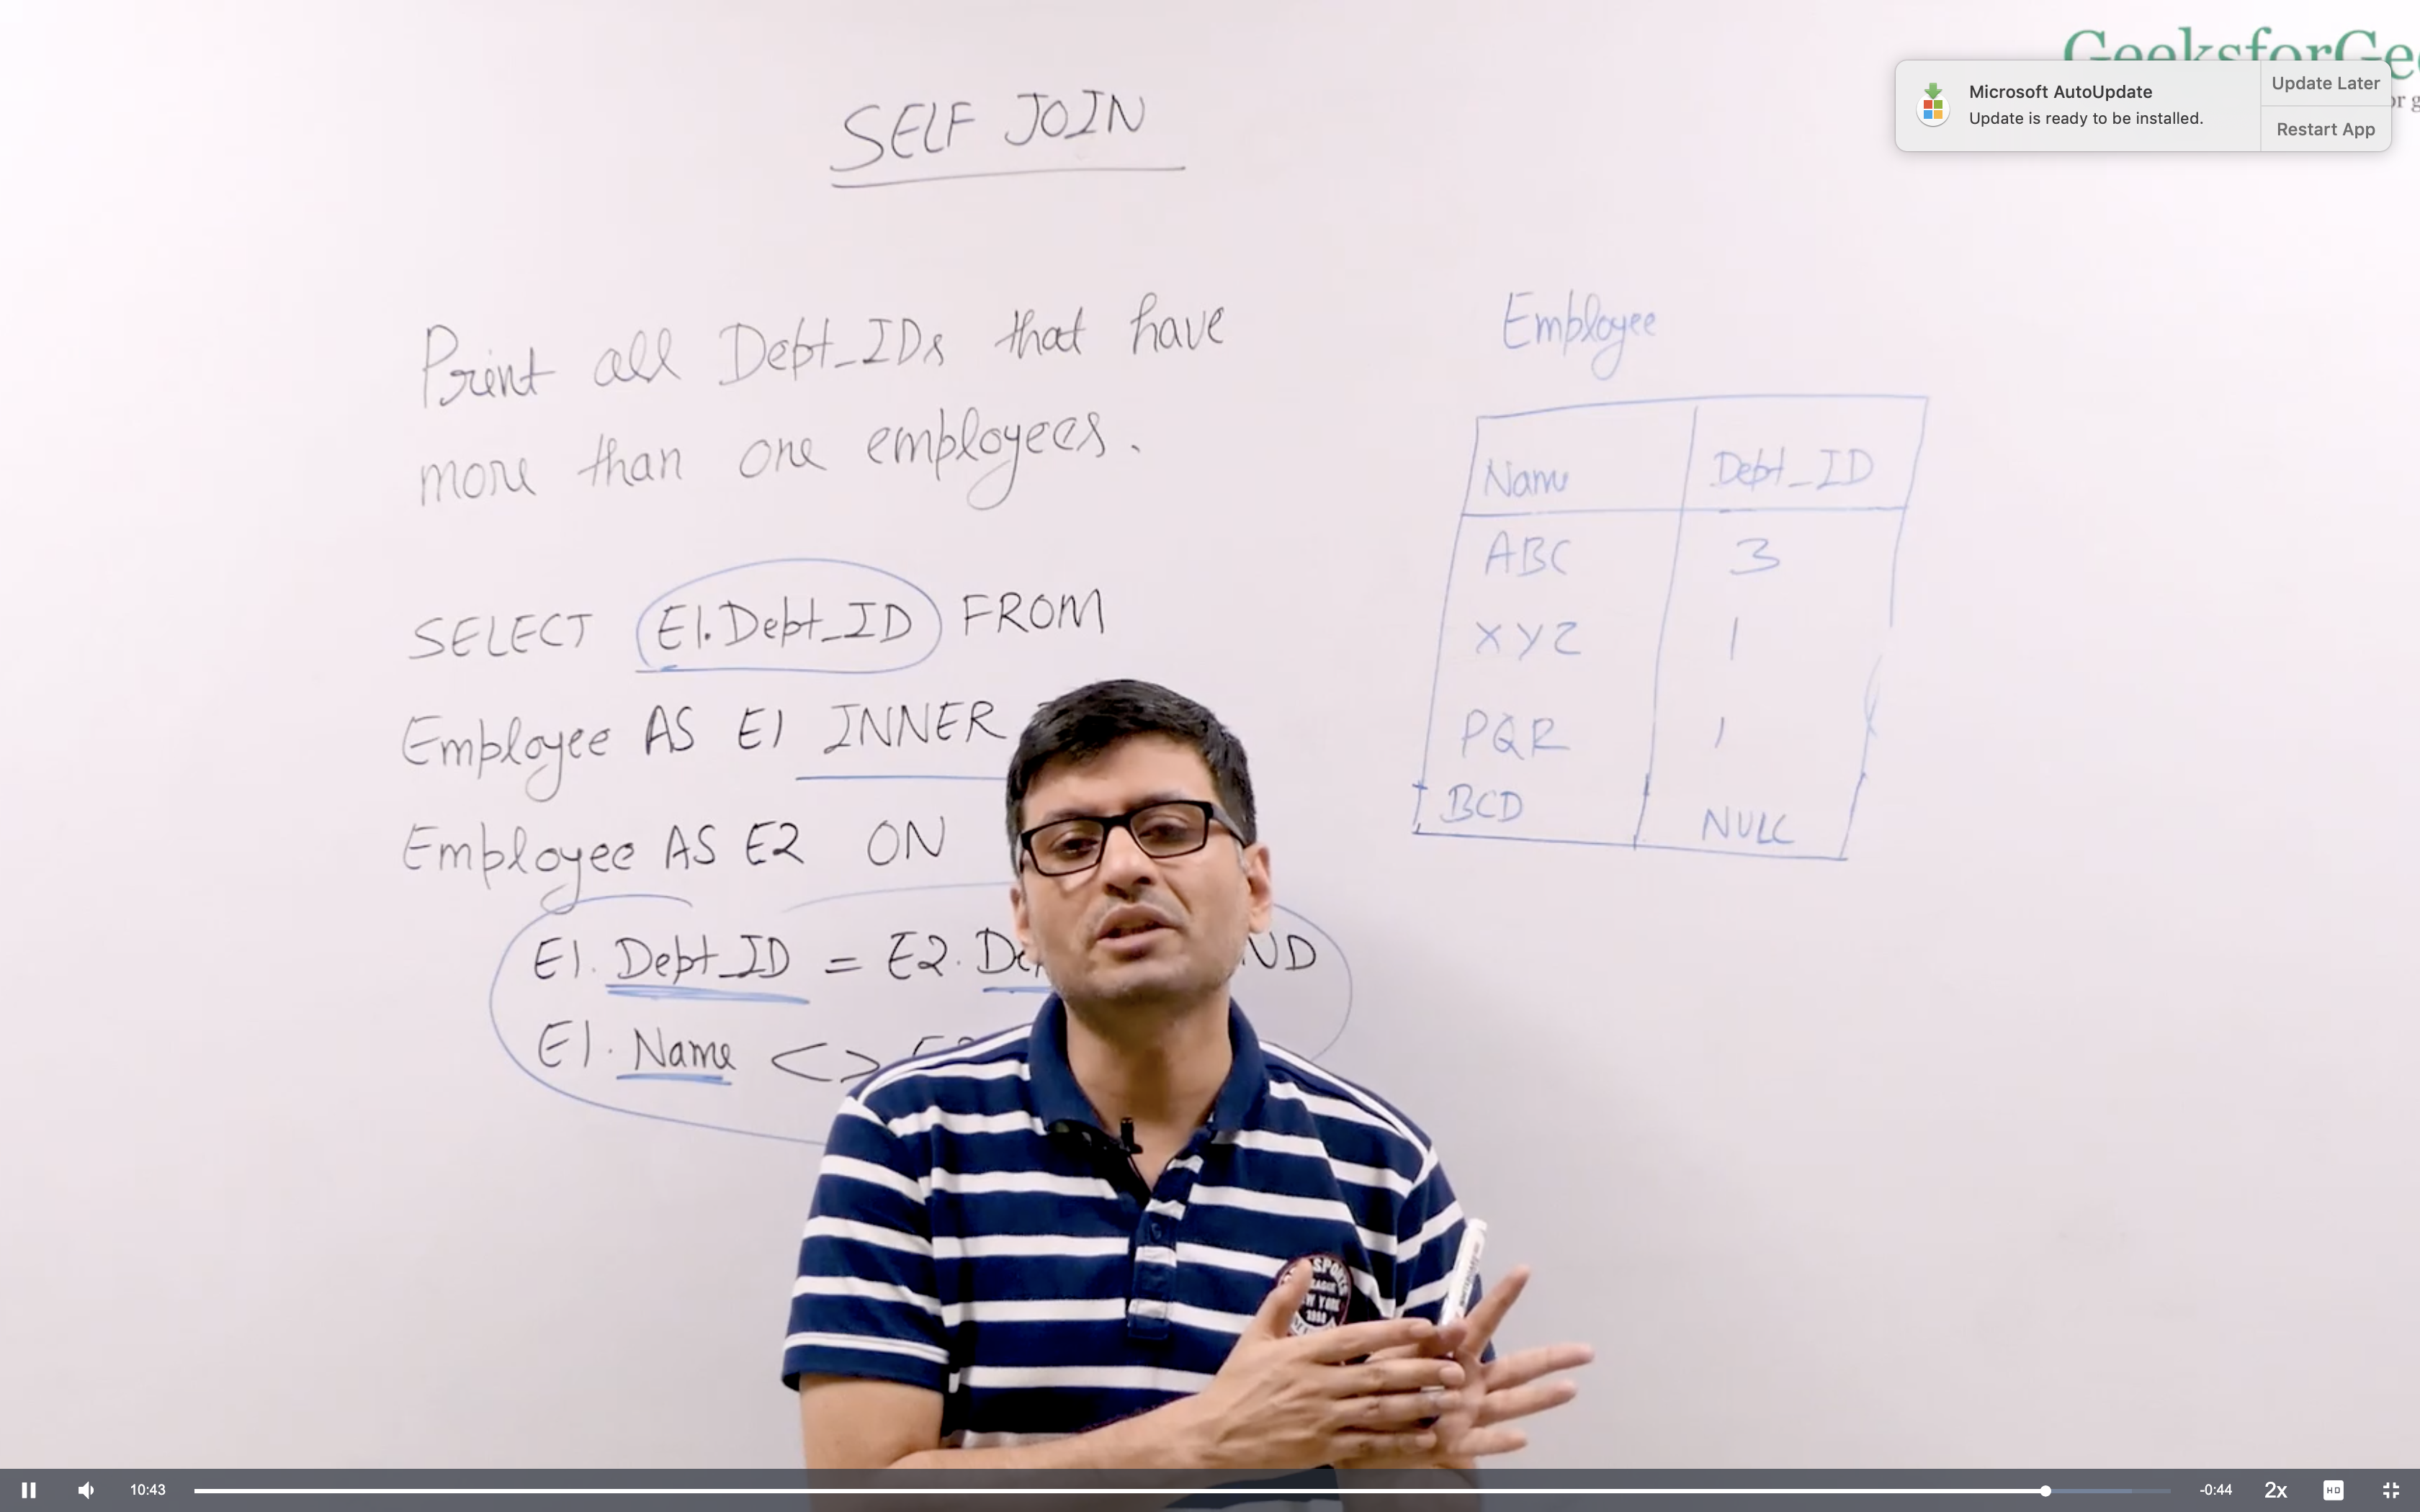 GeeksforGe
Microsoft AutoUpdate
Update is ready to be installed.
Update Later
Restart App
SELF JOIN
Print all Dept_IDs that have
more than one employees.
SELECT E1.Dept_ID FROM
Employee AS E1 INNER
Employee AS E2 ON
E1.Dept_ID = E2.
E1.Name <>
Employee
Name Dept_ID
ABC 3
XYZ 1
PQR 1
BCD NULL
10:43
-0:44
2x
HD